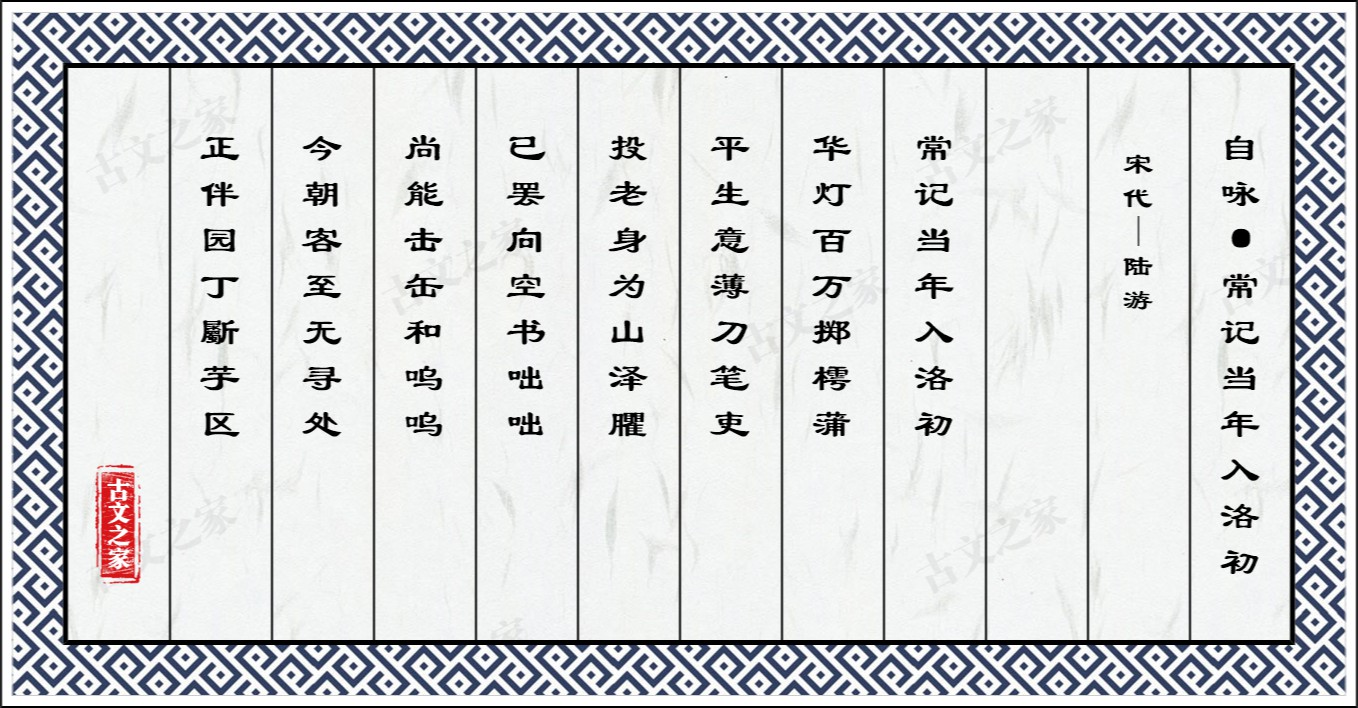 自咏●常记当年入洛初
宋代—陆游
常记当年入洛初
华灯百万掷樗蒲
平生意薄刀笔吏
投老身为山泽臞
已罢向空书咄咄
尚能击缶和呜呜
今朝客至无寻处
正伴园丁斸芋区
古文之家